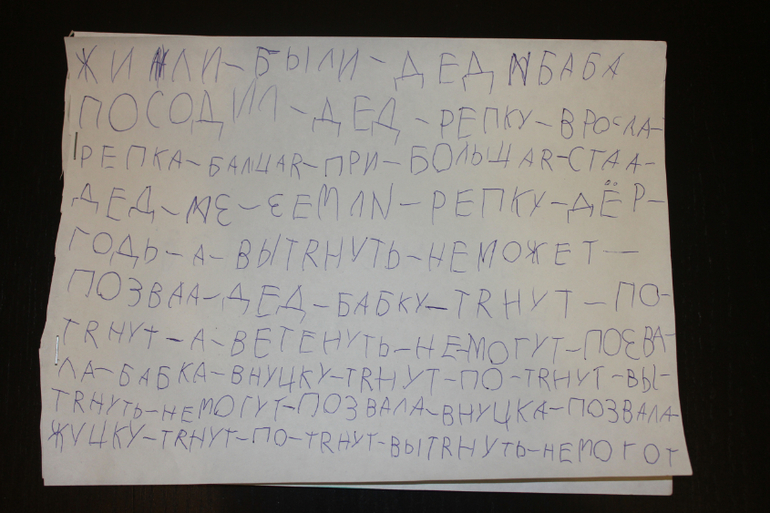 ЖИЛИ-БЫЛИ-ДЕД ИБАБА
ПОСОДИЛ-ДЕД-РЕПКУ-ВРОСЛА-
РЕПКА-БАЛЦАЯ-ПРИ-БОЛЬЦАЯ-СТАА-
ДЕД-ИЗ-ЗЕМЛИ-РЕПКУ-ДЁР-
ГОДЬ-А-ВЫТЯНУТЬ-НЕМОЖЕТ-
ПОЗВАА-ДЕД-БАБКУ-ТЯНУТ-ПО-
ТЯНУТ-А-ВЕТЕНУТЬ-НЕ-МОГУТ-ПОЗВА-
ЛА-БАБКА-ВНУЦКУ-ТЯНУТ-ПО-ТЯНУТ-ВЫ-
ТЯНУТЬ-НЕМОГУТ-ПОЗВАЛА-ВНУЦКА-ПОЗВАЛА-
ЖУЦКУ-ТЯНУТ-ПО-ТЯНУТ-ВЫТЯНУТЬ-НЕМОГОТ